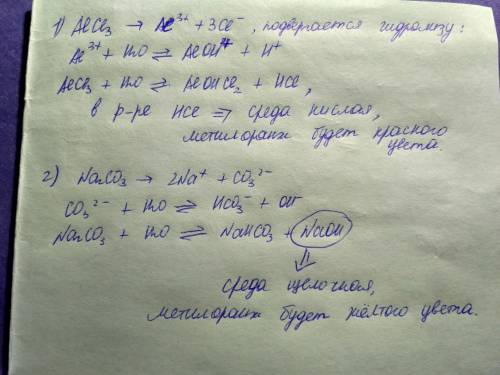 1) AlCl₃ → Al³⁺ + 3Cl⁻, подвергается гидролизу:
Al³⁺ + H₂O ⇌ AlOH²⁺ + H⁺
AlCl₃ + H₂O ⇌ AlOHCl₂ + HCl,
в р-ре HCl ⇒ среда кислая,
метилоранж будет красного
цвета.
2) Na₂CO₃ → 2Na⁺ + CO₃²⁻
CO₃²⁻ + H₂O ⇌ HCO₃⁻ + OH⁻
Na₂CO₃ + H₂O ⇌ NaHCO₃ + NaOH
⇓
среда щелочная,
метилоранж будет жёлтого цвета.